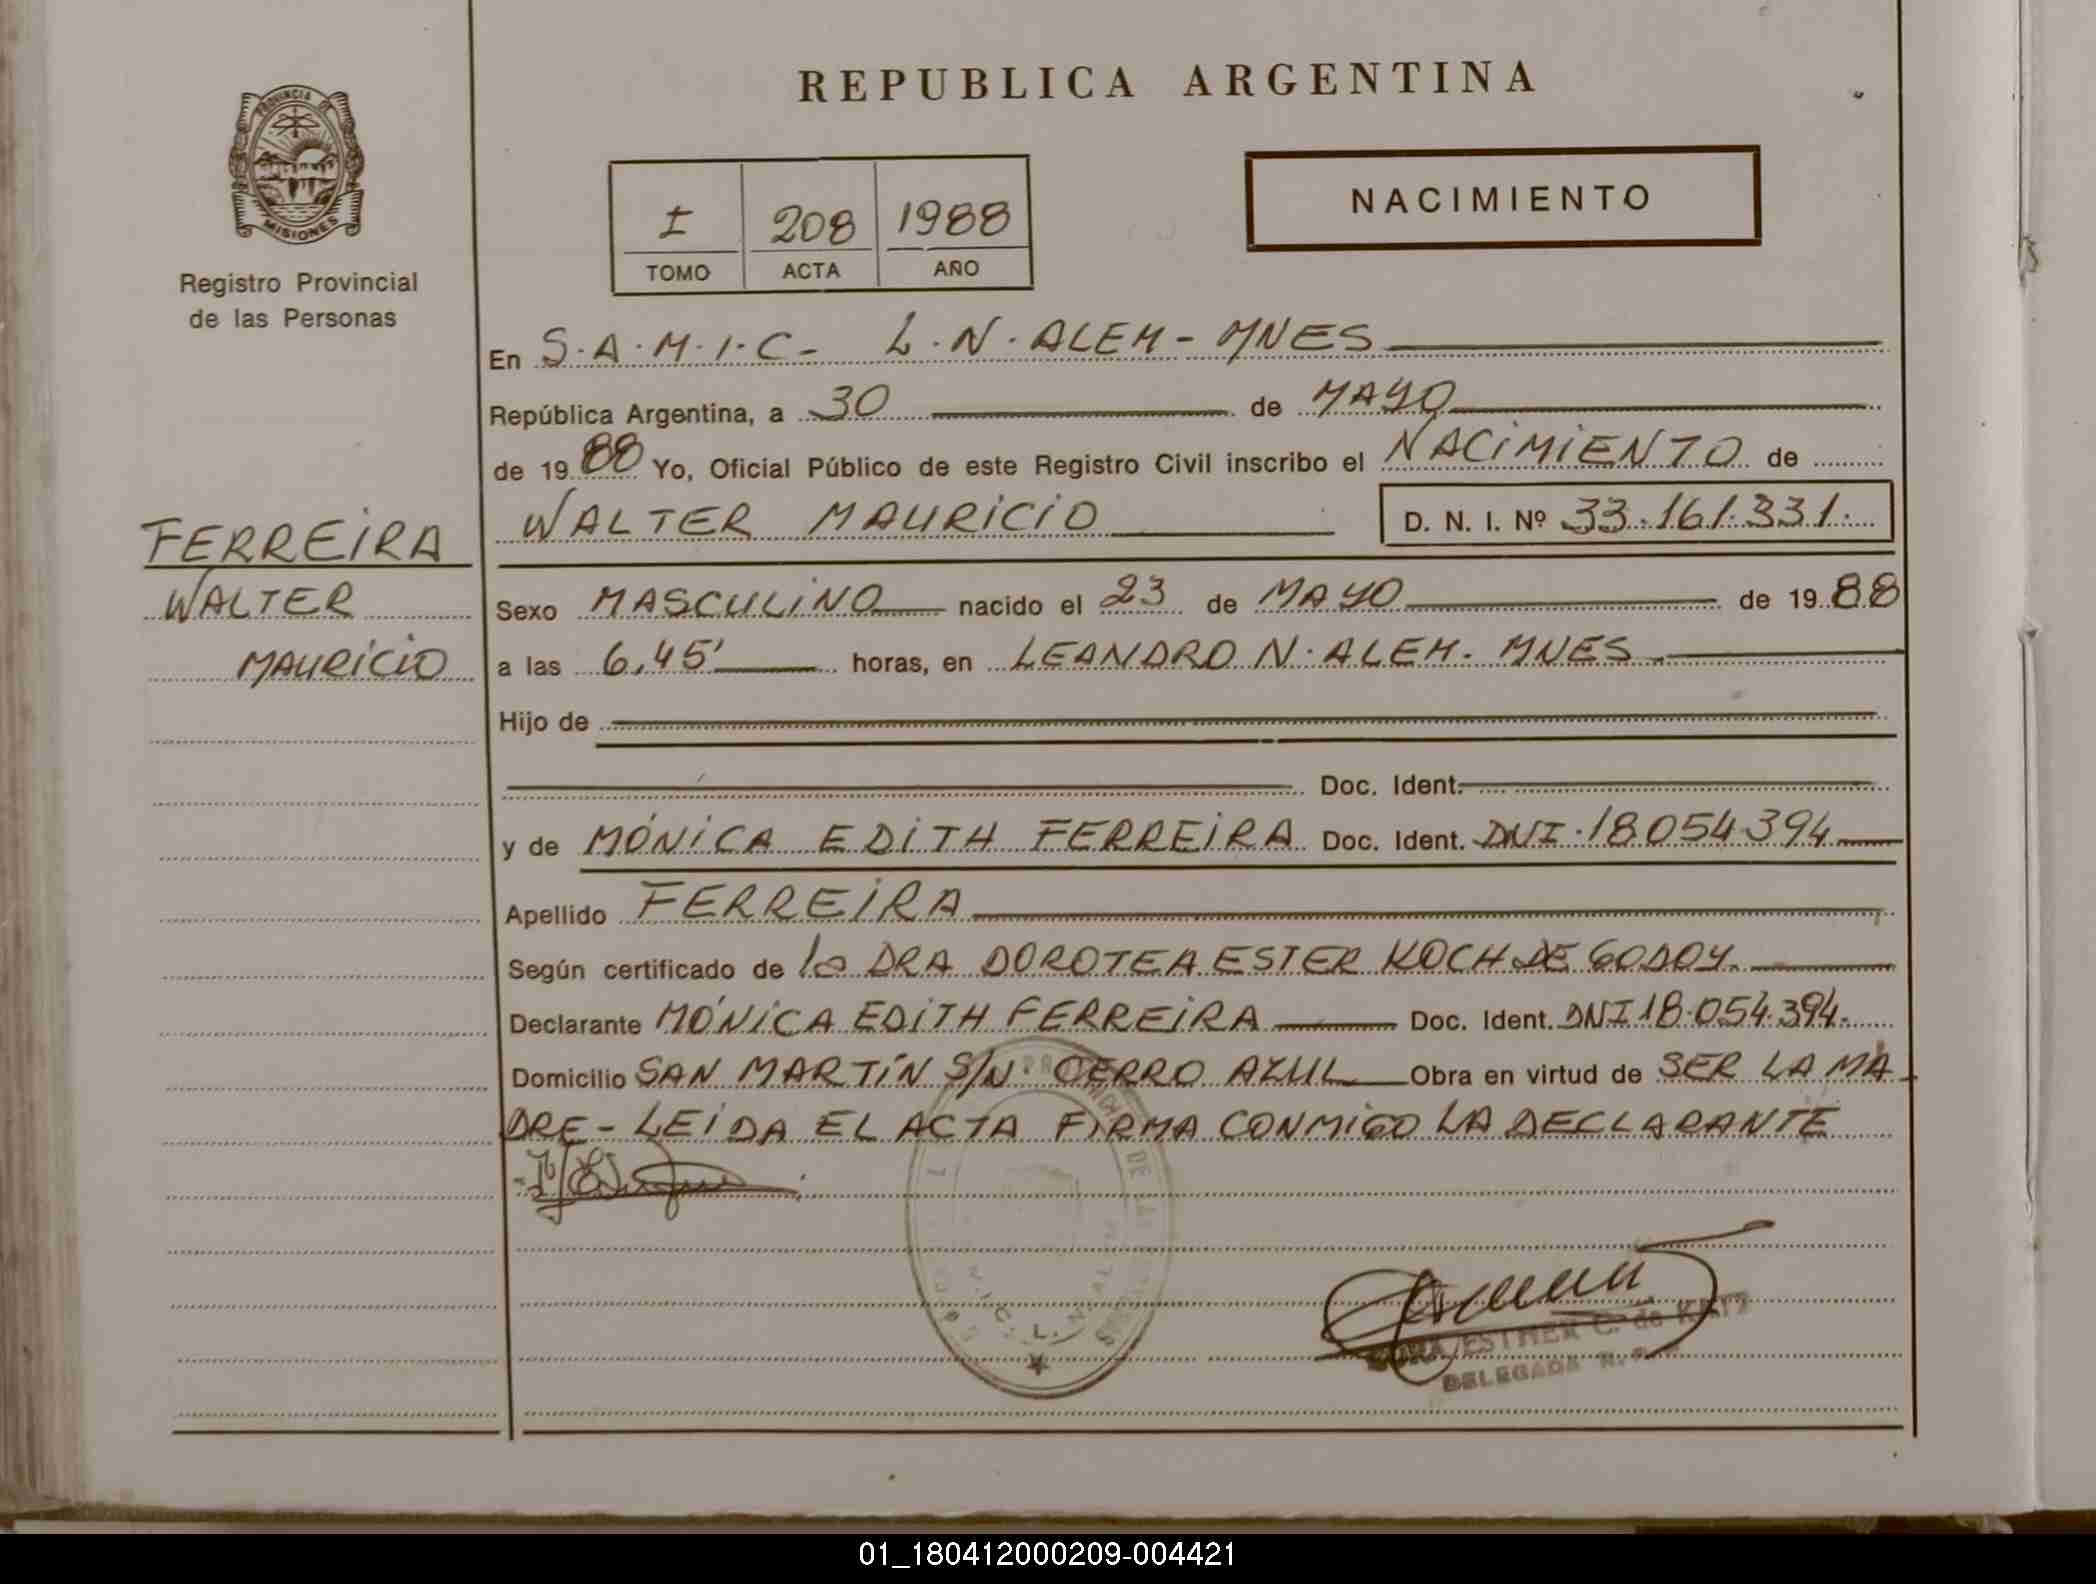 REPUBLICA ARGENTINA
PROVINCIA DE
MISIONES
Registro Provincial
de las Personas
NACIMIENTO
I 208 1988
TOMO ACTA AÑO
En S.A.M.I.C- L.N.ALEM-MNES
República Argentina, a 30 de MAYO
de 1988 Yo, Oficial Público de este Registro Civil inscribo el NACIMIENTO de
WALTER MAURICIO D. N. I. Nº 33.161.331.
FERREIRA
WALTER
MAURICIO
Sexo MASCULINO nacido el 23 de MAYO de 1988
a las 6,45' horas, en LEANDRO N. ALEM. MNES
Hijo de
Doc. Ident.
y de MÓNICA EDITH FERREIRA Doc. Ident. DNI.18.054.394
Apellido FERREIRA
Según certificado de la DRA DOROTEA ESTER KOCH DE GODOY.
Declarante MÓNICA EDITH FERREIRA Doc. Ident. DNI 18.054.394.
Domicilio SAN MARTÍN S/N. CERRO AZUL Obra en virtud de SER LA MA
DRE-LEIDA EL ACTA FIRMA CONMIGO LA DECLARANTE
ESTHER C. de
DELEGADA
01_180412000209-004421